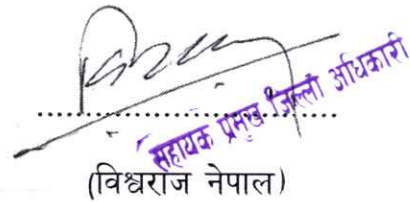 सहायक प्रमुख जिल्ला अधिकारी
(विश्वराज नेपाल)